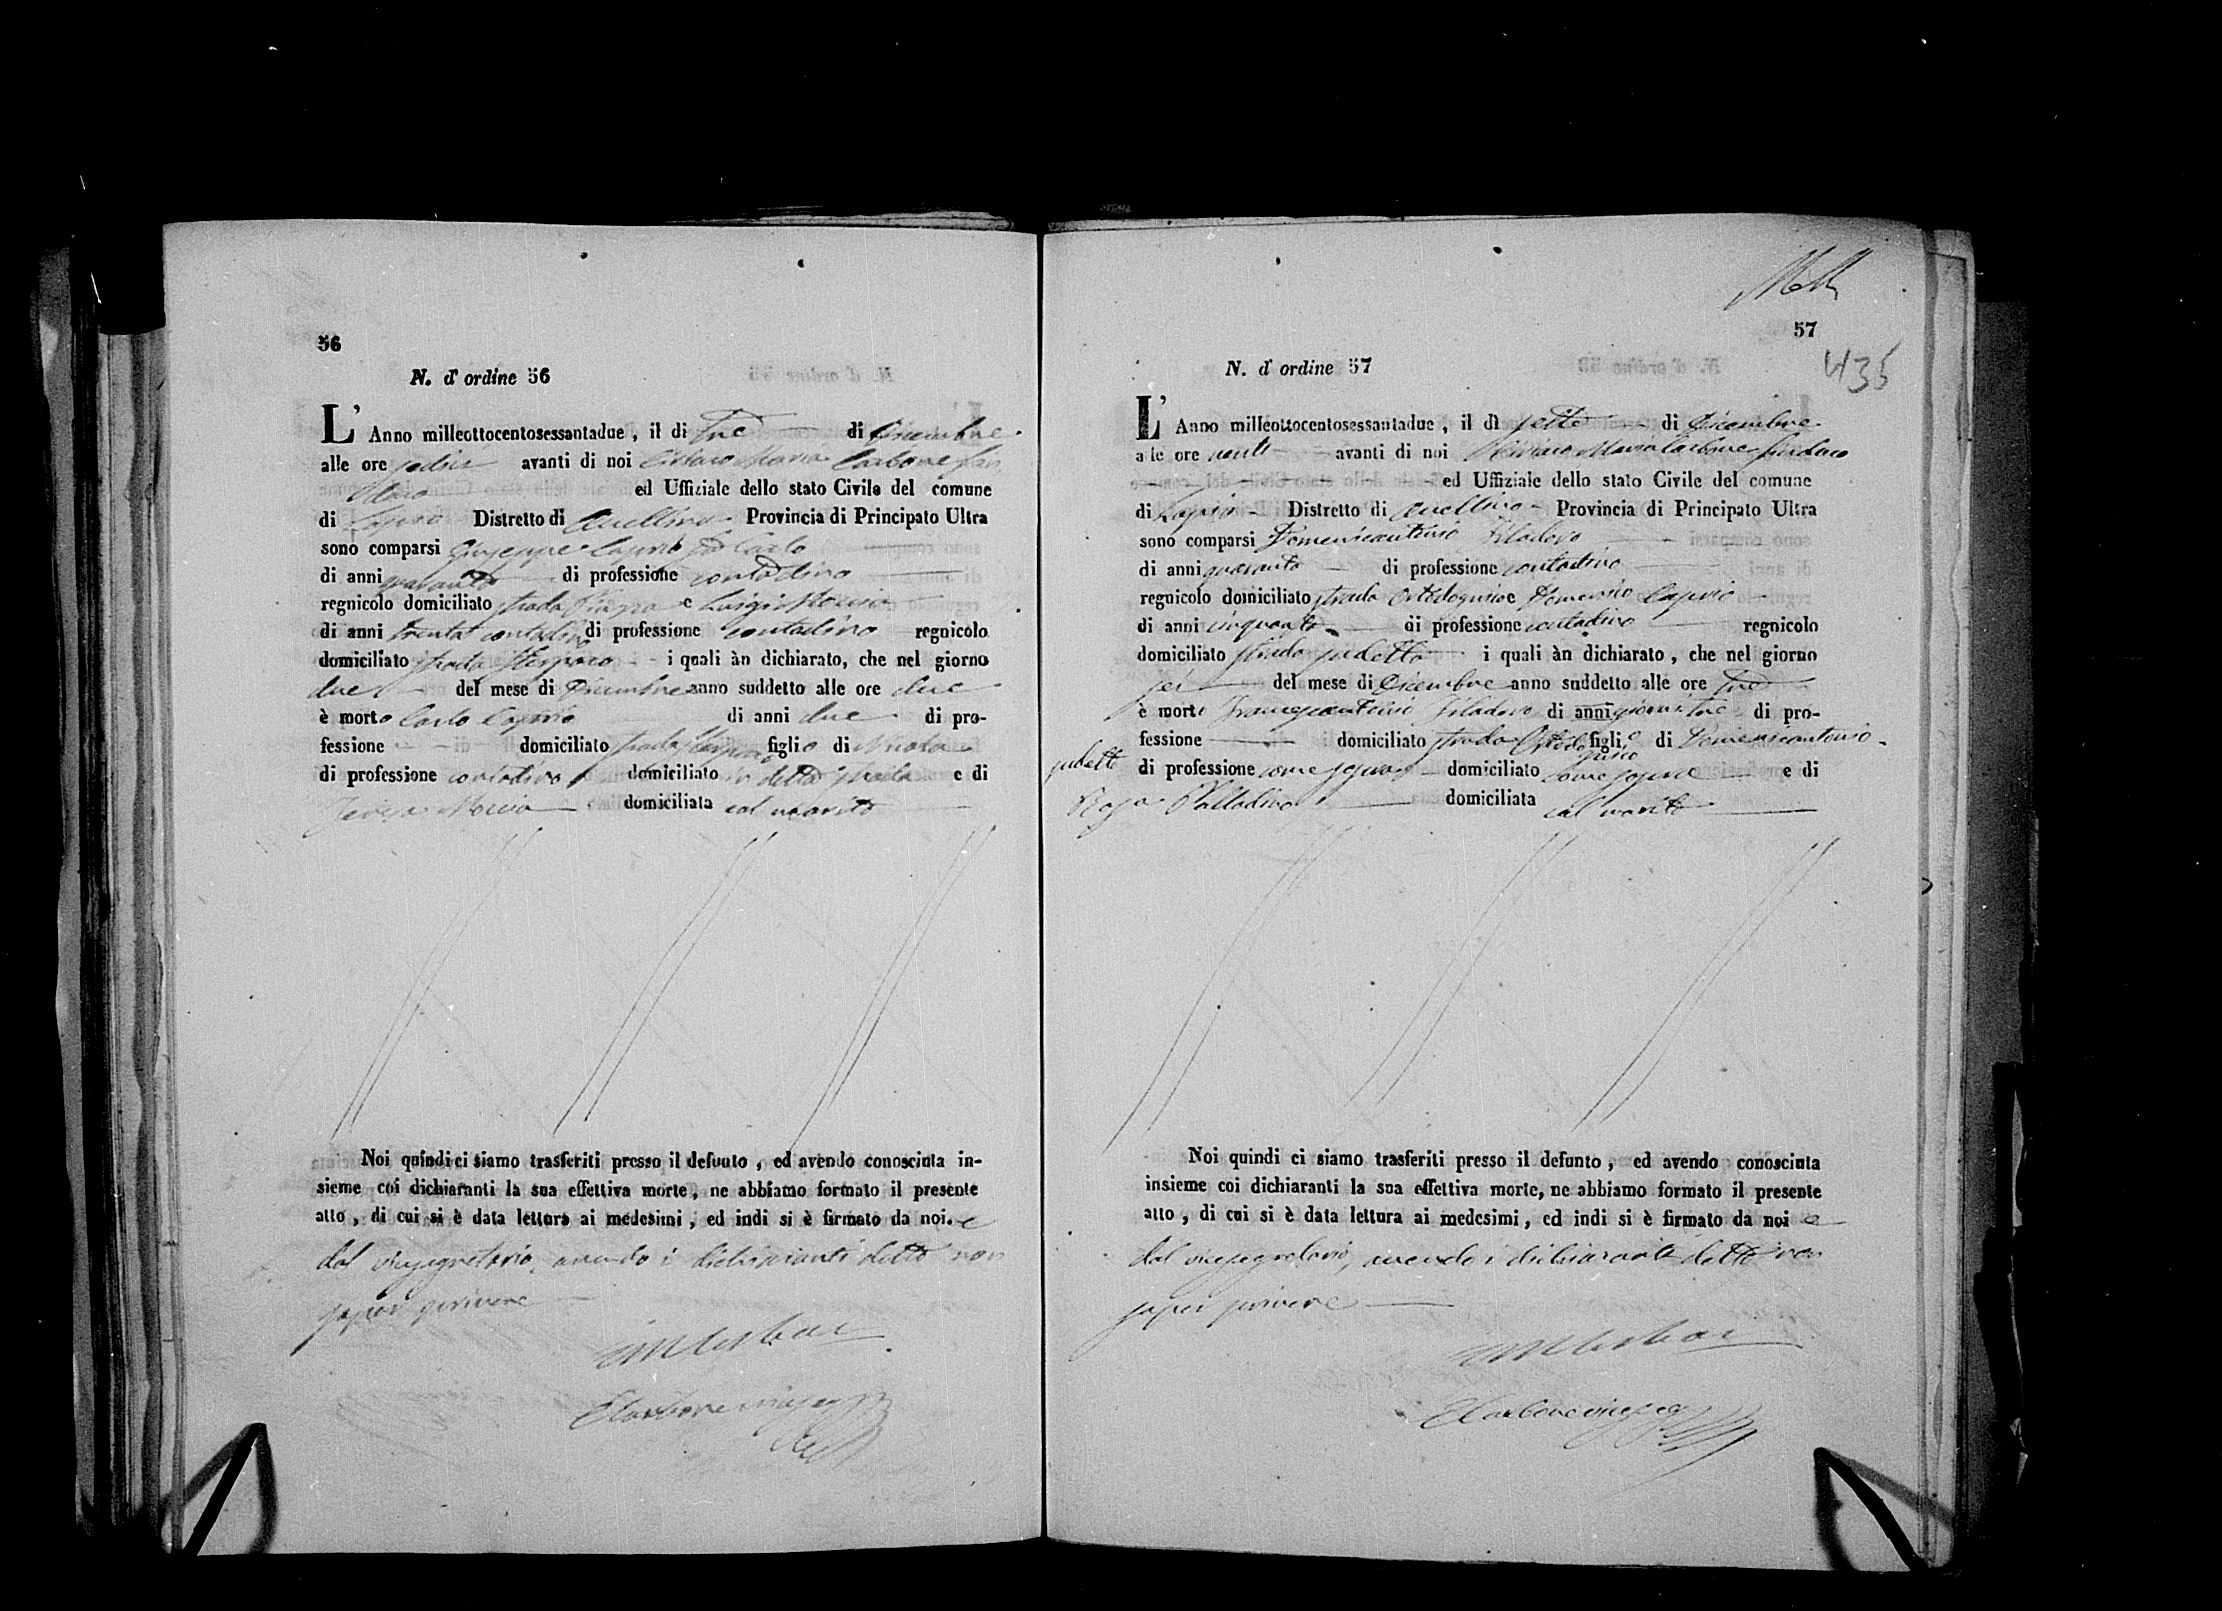 56
N. d' ordine 56
L' Anno milleottocentosessantadue, il di tre di Dicembre
alle ore sedici avanti di noi Ciriaco Maria Carbone Sin
daco ed Uffiziale dello stato Civile del comune
di Lapio Distretto di Avellino Provincia di Principato Ultra
sono comparsi Giuseppe Caprio di Carlo
di anni quaranta di professione contadino
regnicolo domiciliato strada e Luigi
di anni trenta contadino di professione contadino regnicolo
domiciliato strada i quali àn dichiarato, che nel giorno
due del mese di Dicembre anno suddetto alle ore due
è morto Carlo Caprio di anni due di pro-
fessione domiciliato strada figlio di Nicola
di professione contadino domiciliato in detta strada e di
Teresa domiciliata col marito
Noi quindi ci siamo trasferiti presso il defunto, ed avendo conosciuta in-
sieme coi dichiaranti la sua effettiva morte, ne abbiamo formato il presente
atto, di cui si è data lettura ai medesimi, ed indi si è firmato da noi. e
dal vicesegretario, avendo i dichiaranti detto non
saper scrivere
Carbone
57
435
N. d' ordine 57
L' Anno milleottocentosessantadue, il dì sette di Dicembre
alle ore venti avanti di noi Ciriaco Maria Carbone Sindaco
ed Uffiziale dello stato Civile del comune
di Lapio Distretto di Avellino Provincia di Principato Ultra
sono comparsi Domenicantonio Filadoro
di anni quaranta di professione contadino
regnicolo domiciliato strada e Domenico Caprio
di anni cinquanta di professione contadino regnicolo
domiciliato strada sudetta i quali àn dichiarato, che nel giorno
sei del mese di Dicembre anno suddetto alle ore tre
è morto Francescantonio Filadoro di anni giorni tre di pro-
fessione domiciliato strada figlio di Domenicantonio
sudetto di professione come sopra domiciliato come sopra e di
Rosa Palladino domiciliata col marito
Noi quindi ci siamo trasferiti presso il defunto, ed avendo conosciuta
insieme coi dichiaranti la sua effettiva morte, ne abbiamo formato il presente
atto, di cui si è data lettura ai medesimi, ed indi si è firmato da noi e
dal vicesegretario, avendo i dichiaranti detto non
saper scrivere
Carbone